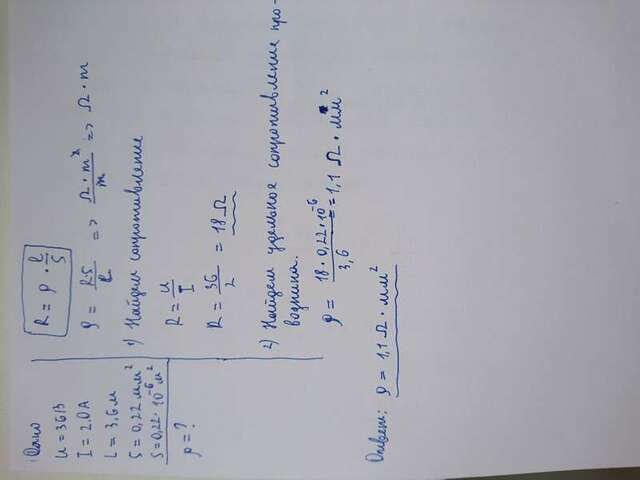 Дано
U = 36 В
I = 2.0 A
L = 3,6 м
S = 0,22 мм²
S = 0,22 · 10⁻⁶ м²
ρ = ?
R = ρ · ℓ/S
ρ = R·S/ℓ => Ω · m²/m => Ω · m
1) Найдем сопротивление
R = U/I
R = 36/2 = 18 Ω
2) Найдем удельное сопротивление про-
водника.
ρ = 18 · 0,22 · 10⁻⁶/3,6 = 1,1 Ω · мм²
Ответ: ρ = 1,1 Ω · мм²